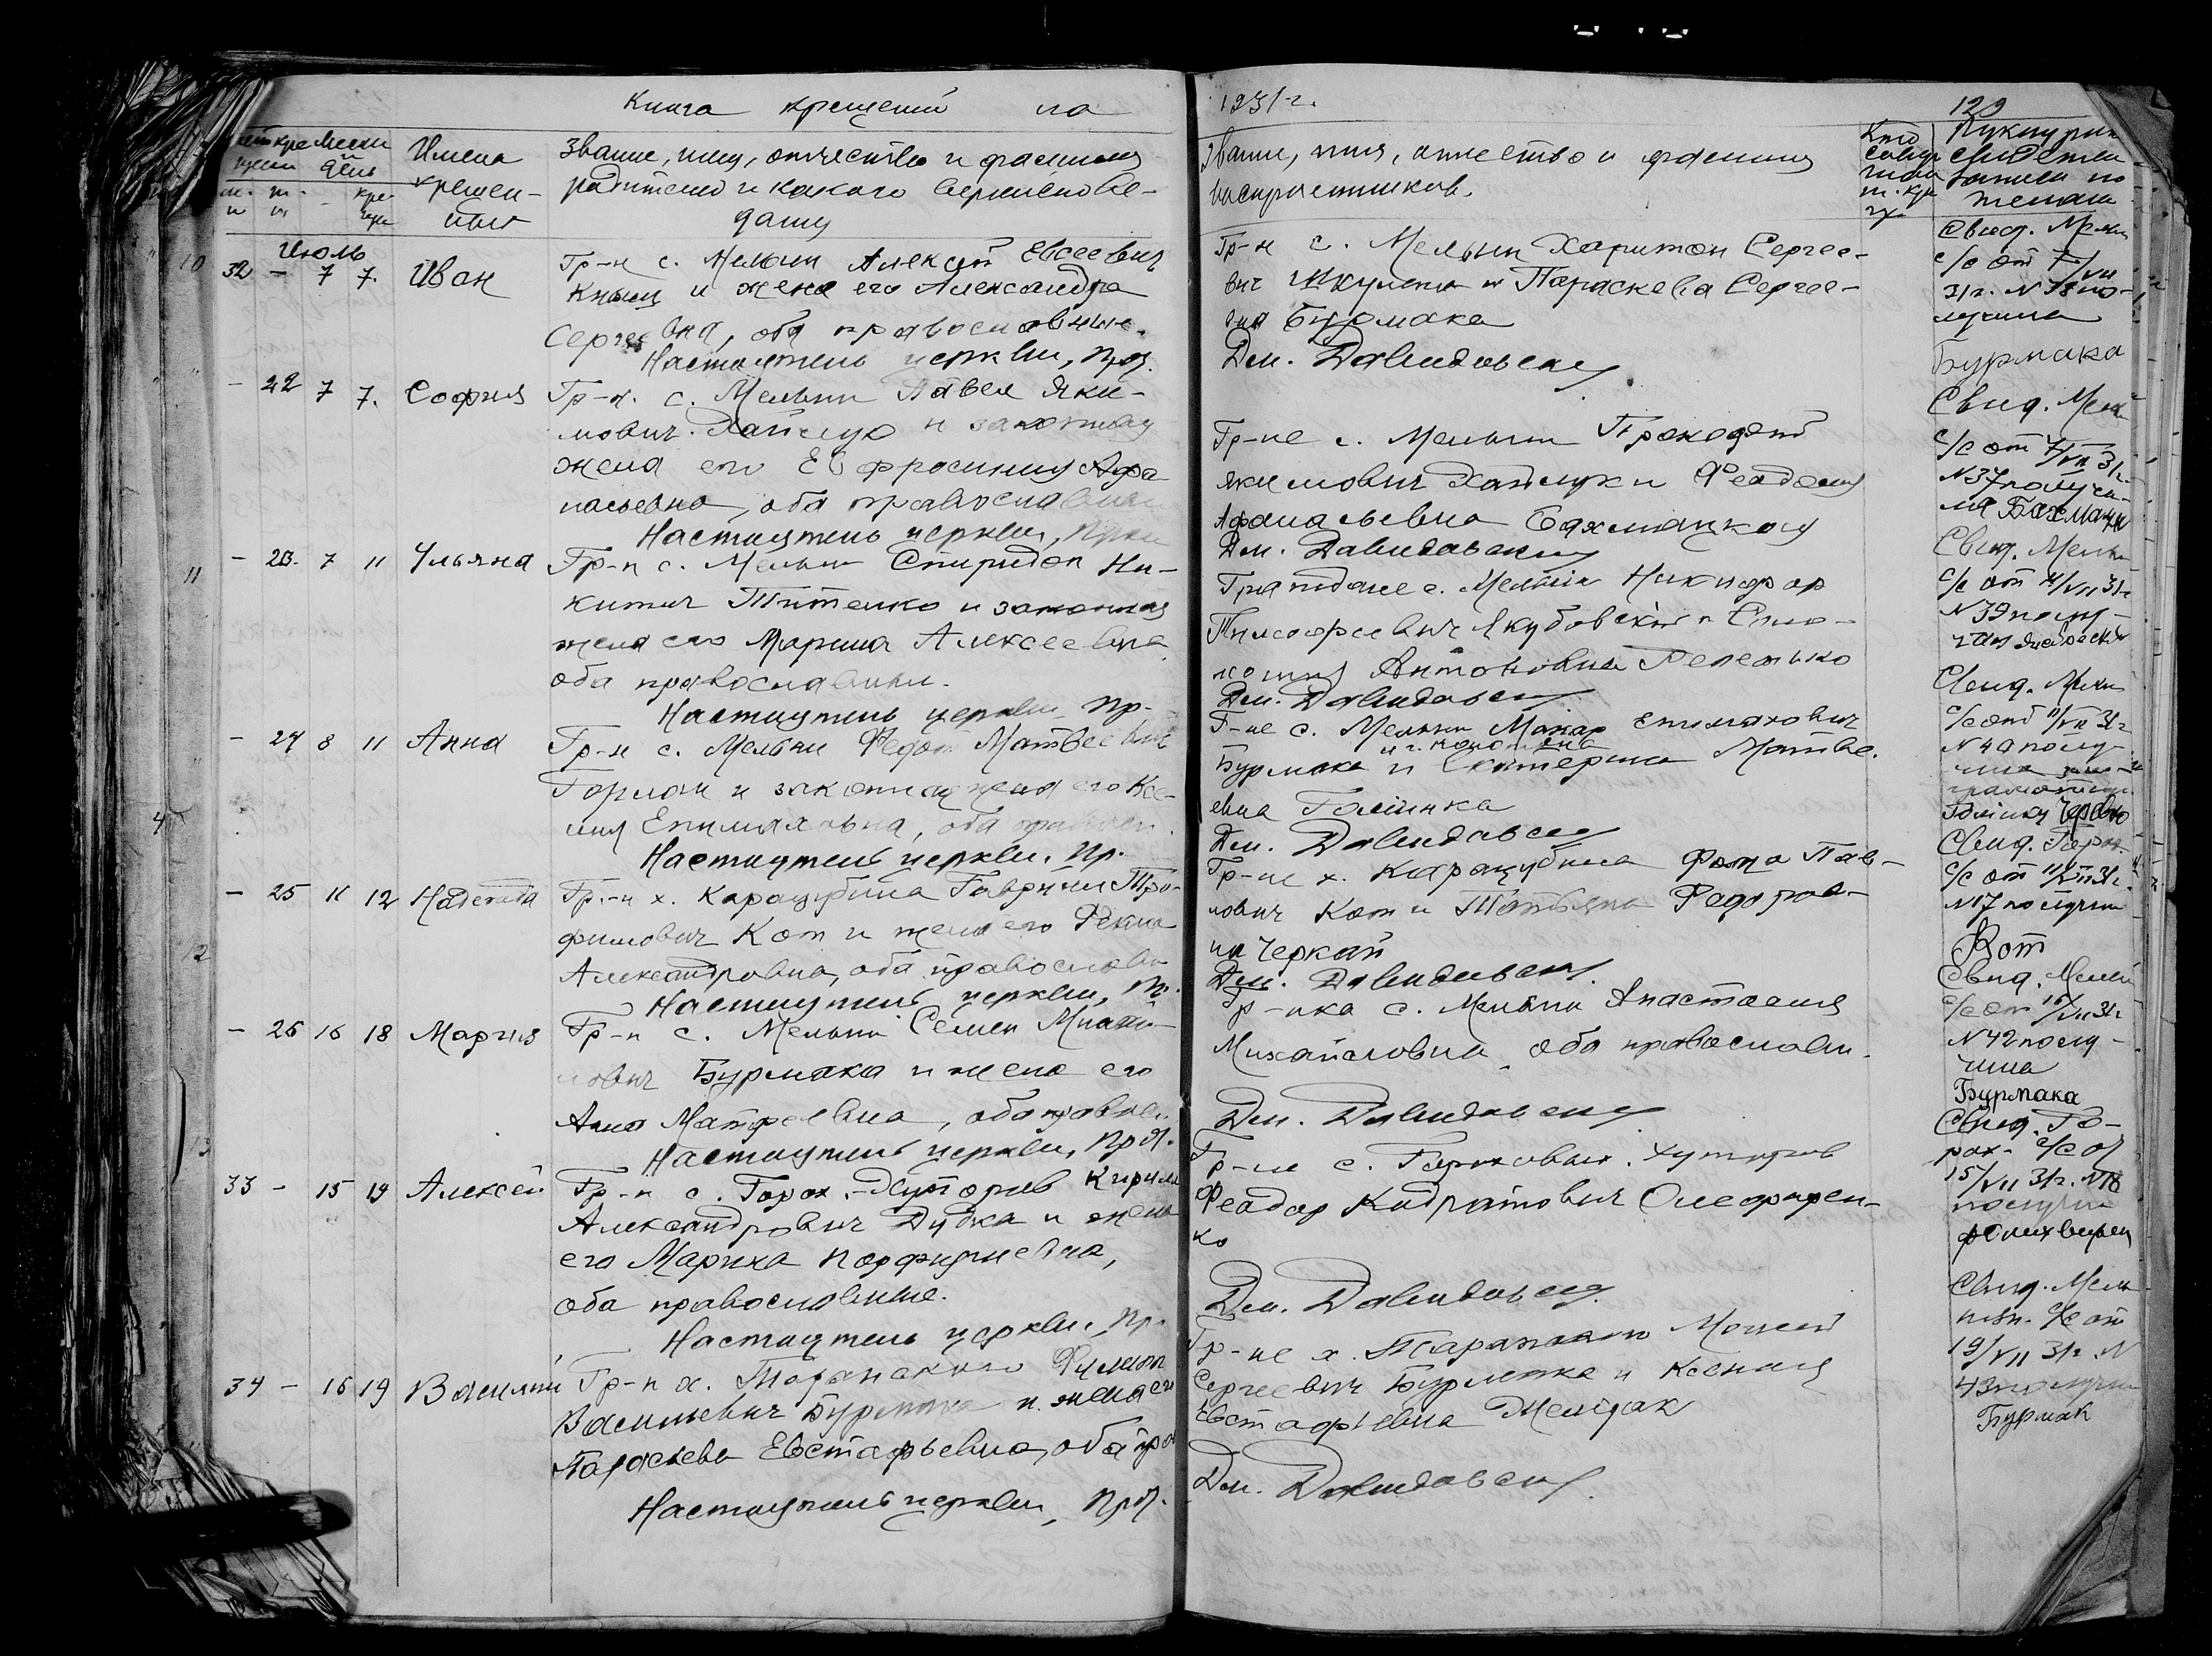 Книга крещений на
1931 г.
129
Месяц и день
Имена крещен-
ных
Звание, имя, отчество и фамилия
родителей и какого вероиспове-
дания
Звание, имя, отчество и фамилия
восприемников.
Кто совер
Июль
32 - 7 7. Иван
Гр-н с. Мельни Алексей Евсеевич
и жена его Александра
Сергеевна, оба православные.
Настоятель церкви, Прот.
Гр-н с. Мельни Харитон Сергее-
вич и Параскева Сергее-
вна Бурмака
Дм. Давидовский
Свид. Мельн
с/с от 7/VII
31 г. N 38 по-
лучила
Бурмака
- 22 7 7. София
Гр-н. с. Мельни Павел Яки-
мович Хайлук и законная
жена его Евфросиния Афа
насьевна, оба православные
Настоятель церкви, Прот
Гр-не с. Мельни Прокофий
Якимович Хайлук и Феодосия
Афанасьевна Бахмацкая
Дм. Давидовский
Свид. Мельн
с/с от 7/VII 31 г.
N 37 получи-
ла Бахмацк
- 23. 7 11 Ульяна
Гр-н с. Мельни Спиридон Ни-
китич Титенко и законная
жена его Марина Алексеевна
оба православные.
Настоятель церкви, Пр-
Граждане с. Мельни Никифор
Тимофеевич Якубовский и Соло-
мония Антоновна
Дм. Давидовский
Свид. Мельн
с/с от 11/VII 31 г
N 39 полу-
чил
- 24 8 11 Анна
Гр-н с. Мельни Федот Матвеевич
Горлач и законная жена его Ксе-
ния Епимаховна, оба правосл.
Настоятель церкви, Пр.
Г-не с. Мельни Макар Епимахович
и г. Конотопа
Бурмака и Екатерина Матве-
евна Голинка
Дм. Давидовский
Свид. Мельн
с/с от 11/VII 31 г
N 40 полу-
чила
- 25 11 12 Надежда
Гр-н х. Карацубина Гавриил Тро-
фимович Кот и жена его Фекла
Александровна, оба православн
Настоятель церкви, Пр.
Гр-не х. Карацубина Фома Пав-
лович Кот и Татьяна Федоров-
на Черкай
Дм. Давидовский
с/с от 11/VII 31 г.
N 17 получил
Кот
- 26 16 18 Мария
Гр-н с. Мельни Семен Михай-
лович Бурмака и жена его
Анна Матфеевна, оба правосл.
Настоятель церкви, Прот.
Гр-нка с. Мельни Анастасия
Михайловна, оба православн.
Дм. Давидовский
Свид. Мельн
с/с от 16/VII 31 г
N 42 полу-
чила
Бурмака
33 - 15 19 Алексей
Гр-н с. Горох. Хуторов Кирилл
Александрович Дудка и жена
его Марина Порфириевна,
оба православные.
Настоятель церкви, Пр.
Гр-не с. Гороховых Хуторов
Феодор Кодратович Олефирен-
ко
Дм. Давидовский
Свид. Го-
рох- с/с от
15/VII 31 г. N 18
получил
34 - 16 19 Василий
Гр-н х. Таранского Филипп
Васильевич Бурмака и жена его
Параскева Евстафьевна, оба пра
Настоятель церкви, Прот.
Гр-не х. Таранского Моисей
Сергеевич Бурмака и Ксения
Евстафиевна
Дм. Давидовский
Свид. Мель-
нян. с/с от
19/VII 31 г. N
43 получил
Бурмак